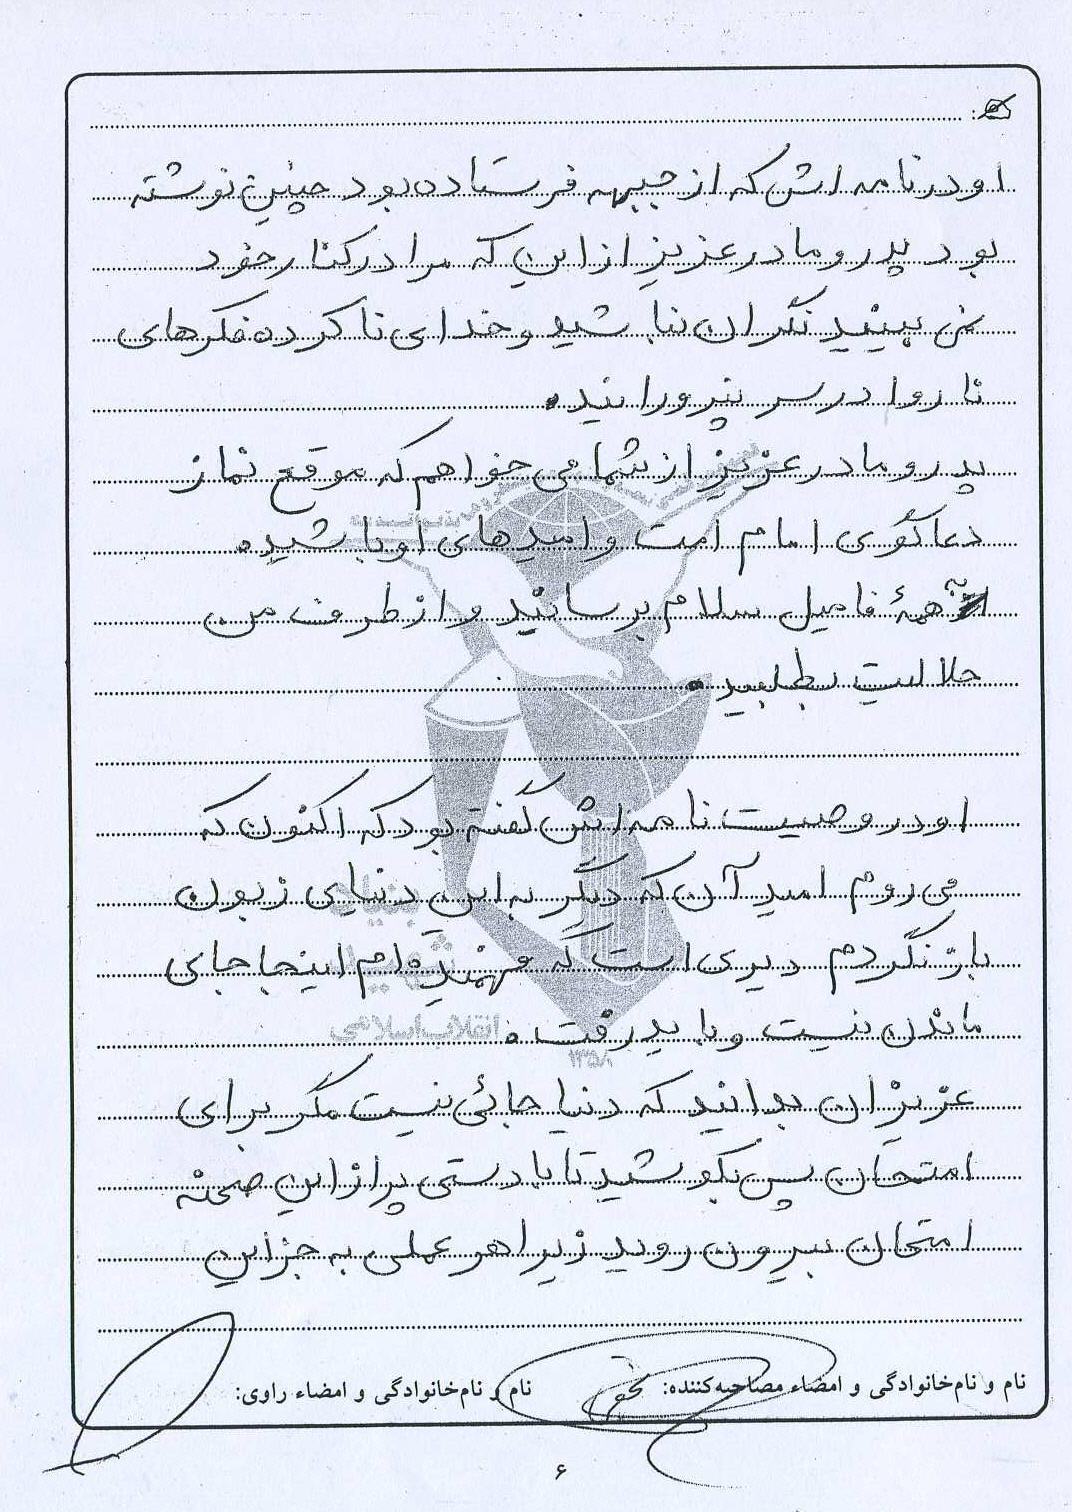 او در نامه اش که از جبهه فرستاده بود چنین نوشته
بود پدر و مادر عزیز از این که مرا در کنار خود
نمی بینید نگران نباشید و خدای ناکرده فکرهای
ناروا در سر نپرورانید.
پدر و مادر عزیز از شما می خواهم که موقع نماز
دعاگوی امام امت و امیدهای او باشید.
به همهٔ فامیل سلام برسانید و از طرف من
حلالیت بطلبید.
او در وصیت نامه اش گفته بود که اکنون که
می روم امید آن که دیگر به این دنیای زبون
باز نگردم دیری است که فهمیده ام اینجا جای
ماندن نیست و باید رفت.
عزیزان بدانید که دنیا جائی نیست مگر برای
امتحان پس بکوشید تا با دستی پر از این صحنه
امتحان بیرون روید زیرا هر عملی به جز این
نام و نام‌خانوادگی و امضاء مصاحبه‌کننده: نام و نام‌خانوادگی و امضاء راوی:
۶
بنیاد
شهید
انقلاب اسلامی
۱۳۵۸